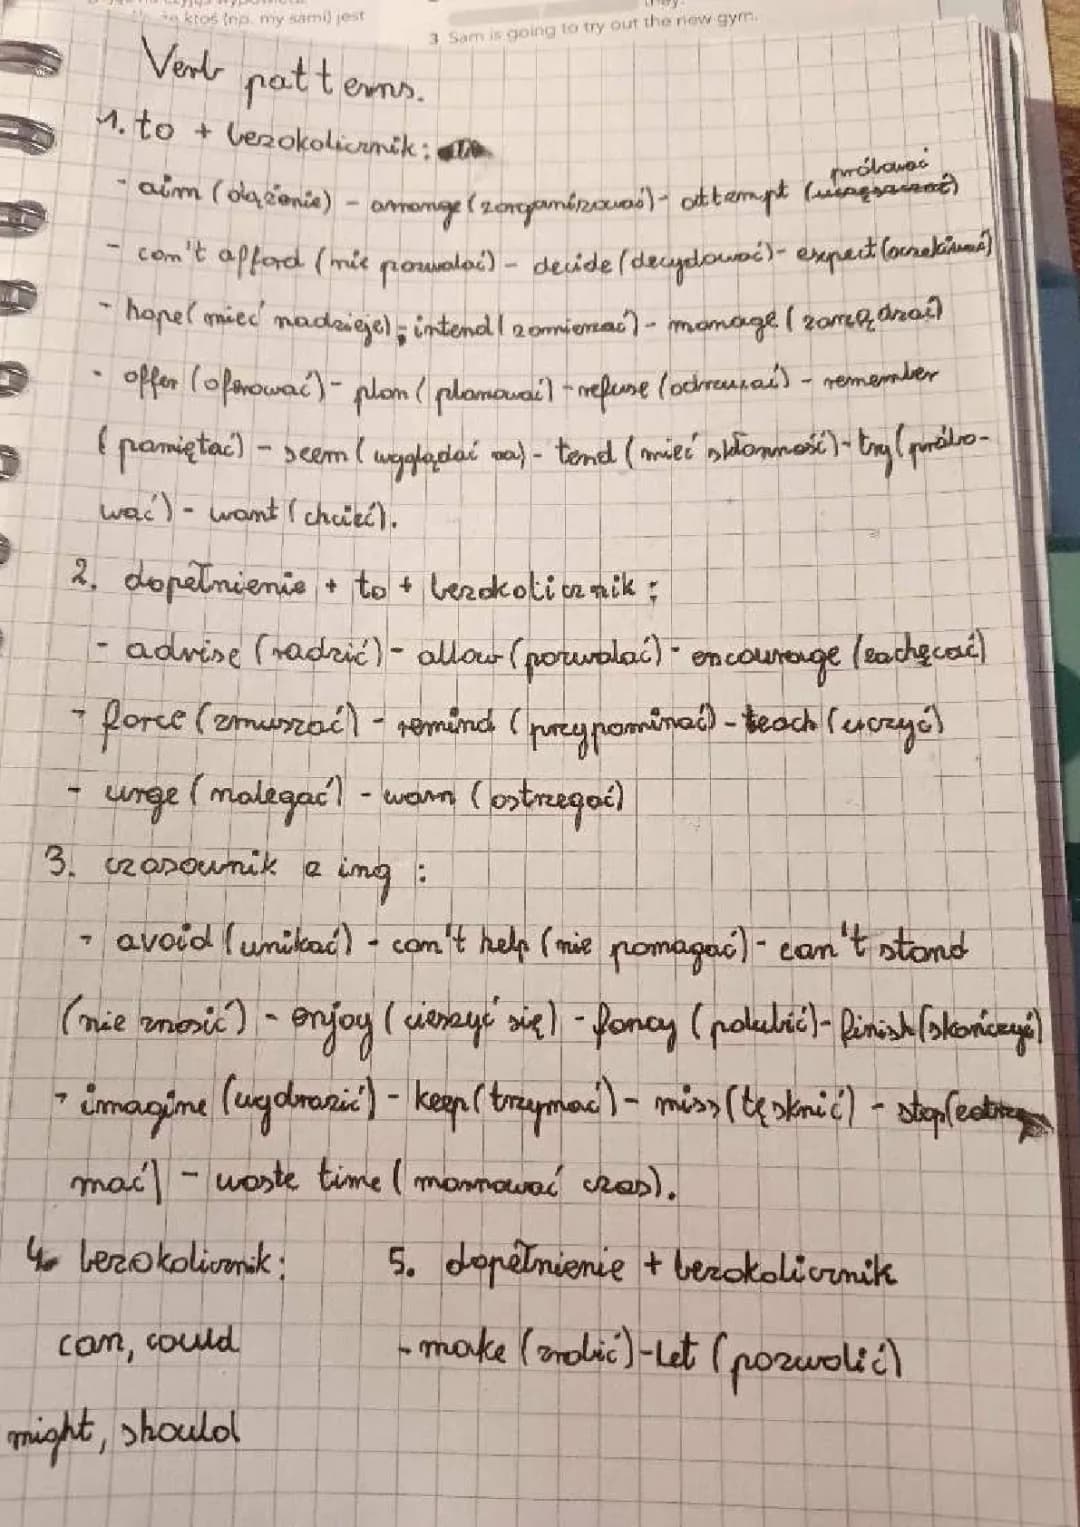 ktoś (np. my sami) jest
3 Sam is going to try out the new gym.
Verb patterns.
1. to + bezokolicznik:
próbować
- aim (dążenie) - arrange (zorganizować) - attempt
- can't afford (nie pozwalać) - decide (decydować) - expect (oczekiwać)
- hope (mieć nadzieje) - intend (zamierzać) - manage (zarządzać)
- offer (oferować) - plan (planować) - refuse (odrzucać) - remember
(pamiętać) - seem (wyglądać na) - tend (mieć skłonność) - try (próbo-
wać) - want (chcieć).
2. dopełnienie + to + bezokolicznik:
- advise (radzić) - allow (pozwalać) - encourage (zachęcać)
- force (zmuszać) - remind (przypominać) - teach (uczyć)
- urge (nalegać) - warn (ostrzegać)
3. czasownik z ing :
- avoid (unikać) - can't help (nie pomagać) - can't stand
(nie znosić) - enjoy (cieszyć się) - fancy (polubić) - finish (skończyć)
- imagine (wyobrazić) - keep (trzymać) - miss (tęsknić) - stop (zatrzy
mać) - waste time (marnować czas).
4. bezokolicznik: 5. dopełnienie + bezokolicznik
can, could - make (zrobić) - Let (pozwolić)
might, should